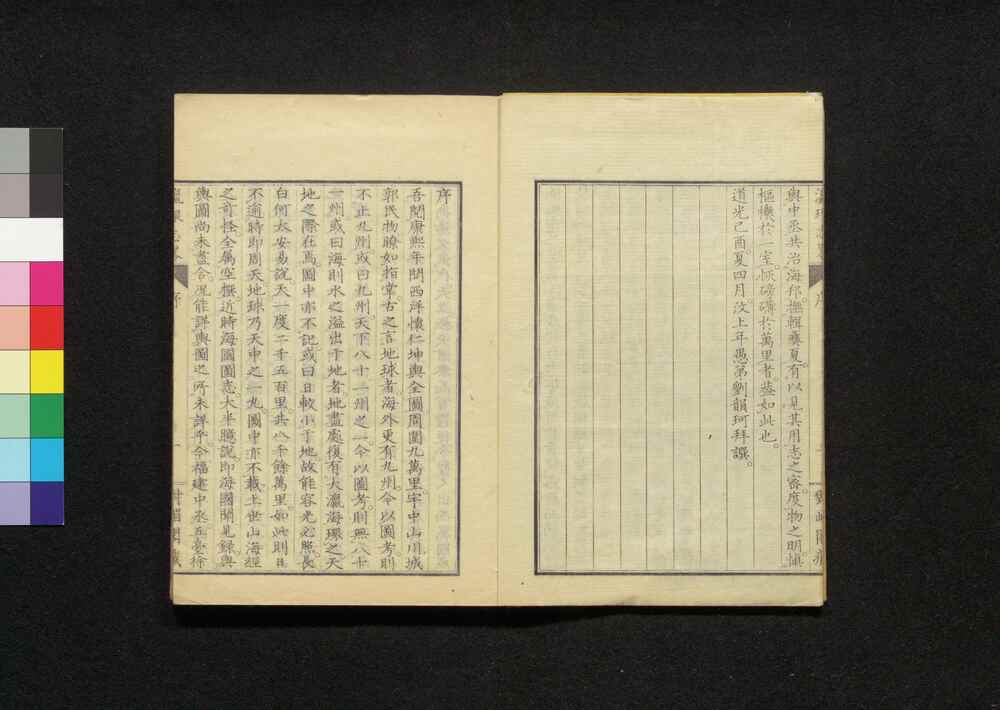 輿中丞共治海邦撫輯彝夏有以見其用志之審度物之明慎
樞機於一室恢磅礴於萬里者葢如此也
道光己酉夏四月汶上年愚弟劉韻珂拜譔
序
吾聞康熙年間西洋懷仁坤輿全圖周圍九萬里宇中山川城
郭民物瞭如指掌古之言地球者海外更有九州今以圖考則
不止九州或曰九州天下八十一州之一今以圖考則無八十
一州或曰海則水之溢出于地者地盡處復有大瀛海環之天
地之際在焉圖中亦不記或曰日較小于地故能容光必照長
白何太安易說天一度二千五百里共八千餘萬里如此則日
不逾時即周天地球乃天中之一丸圖中亦不載上世山海經
之奇怪全屬空撰近時海國圖志大半臆說即海國聞見錄與
輿圖尚未盡合况能詳輿圖之所未詳乎今福建中丞五臺徐
序